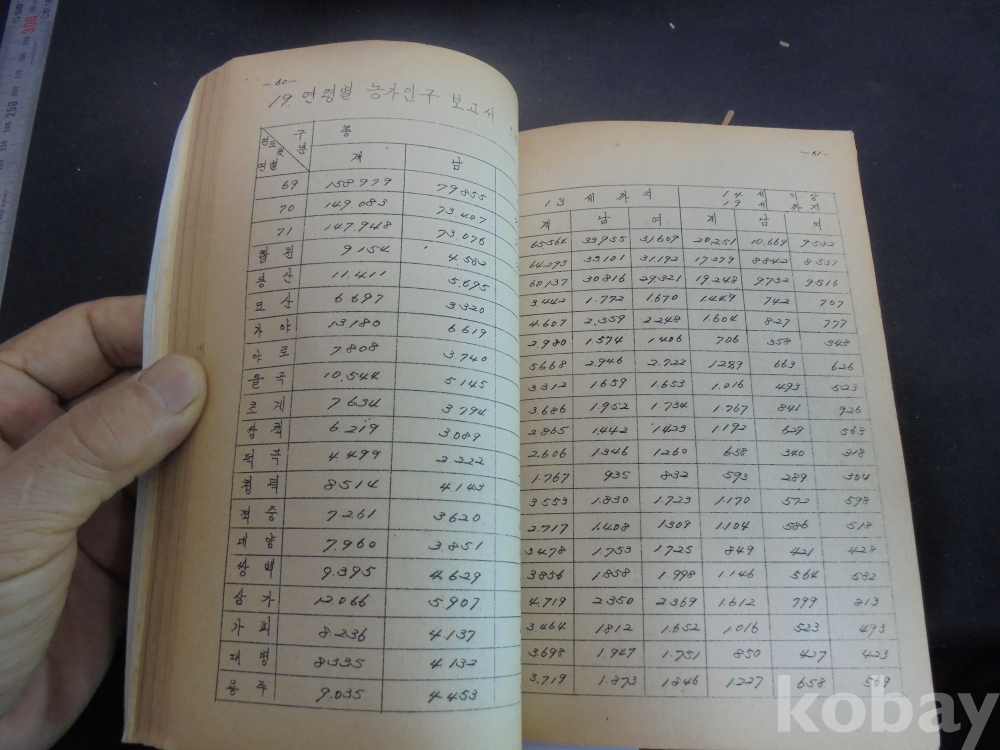 300
250
-60-
19. 연령별 농가인구 보고서
구분
농
계 남
69 158979 79855
70 149083 73407
71 147.948 73.076
9154 4.582
용산 11.411 5.695
묘산 6697 3320
가야 13180 6619
야로 7808 3.740
율곡 10.544 5145
초계 7634 3.794
쌍책 6.219 3.089
덕곡 4.499 2.222
청덕 8514 4143
적중 7.261 3.620
대양 7.960 3.851
쌍백 9.395 4.629
삼가 12.066 5.907
가회 8.236 4.137
대병 8335 4.132
용주 9.035 4.453
-61-
13세까지 14세이상 19세까지
계 남 여 계 남 여
65564 33.955 31.609 20.251 10.669 9.582
64.293 33.101 31.192 17.379 8.842 8.537
60137 30816 29.321 19.248 9732 9.516
3.442 1.772 1.670 1.449 742 707
4.607 2.359 2248 1.604 827 777
2.980 1.574 1406 706 358 348
5668 2.946 2.722 1289 663 626
3312 1659 1.653 1.016 493 523
3.686 1.952 1.734 1.767 841 926
2.865 1.442 1423 1.192 629 563
2.606 1346 1260 658 340 318
1.767 935 832 593 289 304
3.553 1.830 1.723 1.170 572 598
2.717 1.408 1309 1104 586 518
3.478 1.753 1725 849 421 428
3.856 1858 1.998 1146 564 582
4.719 2350 2369 1.612 799 813
3.464 1812 1.652 1.016 523 493
3.698 1.947 1.751 850 427 423
3.719 1.873 1846 1227 658 569
kobay